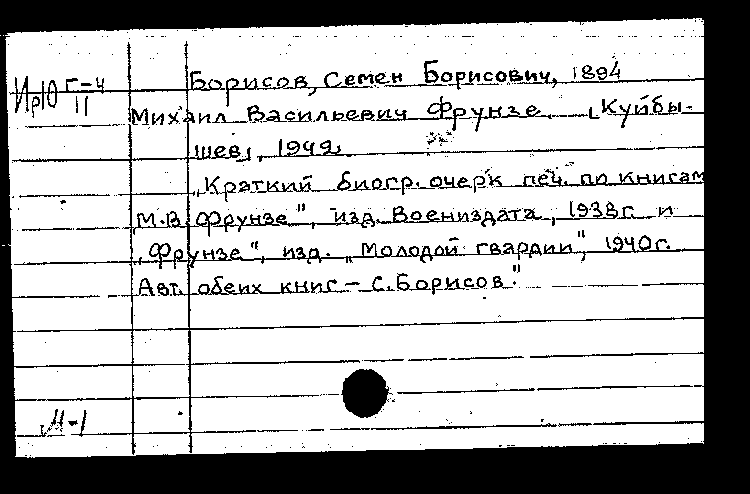 Ир10 Г-4
II
Борисов, Семен Борисович, 1894
Михаил Васильевич Фрунзе. [Куйбы-
шев], 1942.
„Краткий биогр. очерк печ. по книгам
М.В. Фрунзе", изд. Воениздата, 1938г. и
„Фрунзе", изд. „Молодой гвардии", 1940г.
Авт. обеих книг - С. Борисов."
М-1